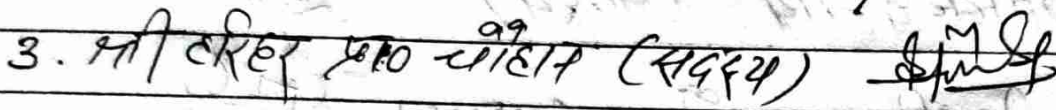 3. श्री हरिहर प्र० चौहान (सदस्य)